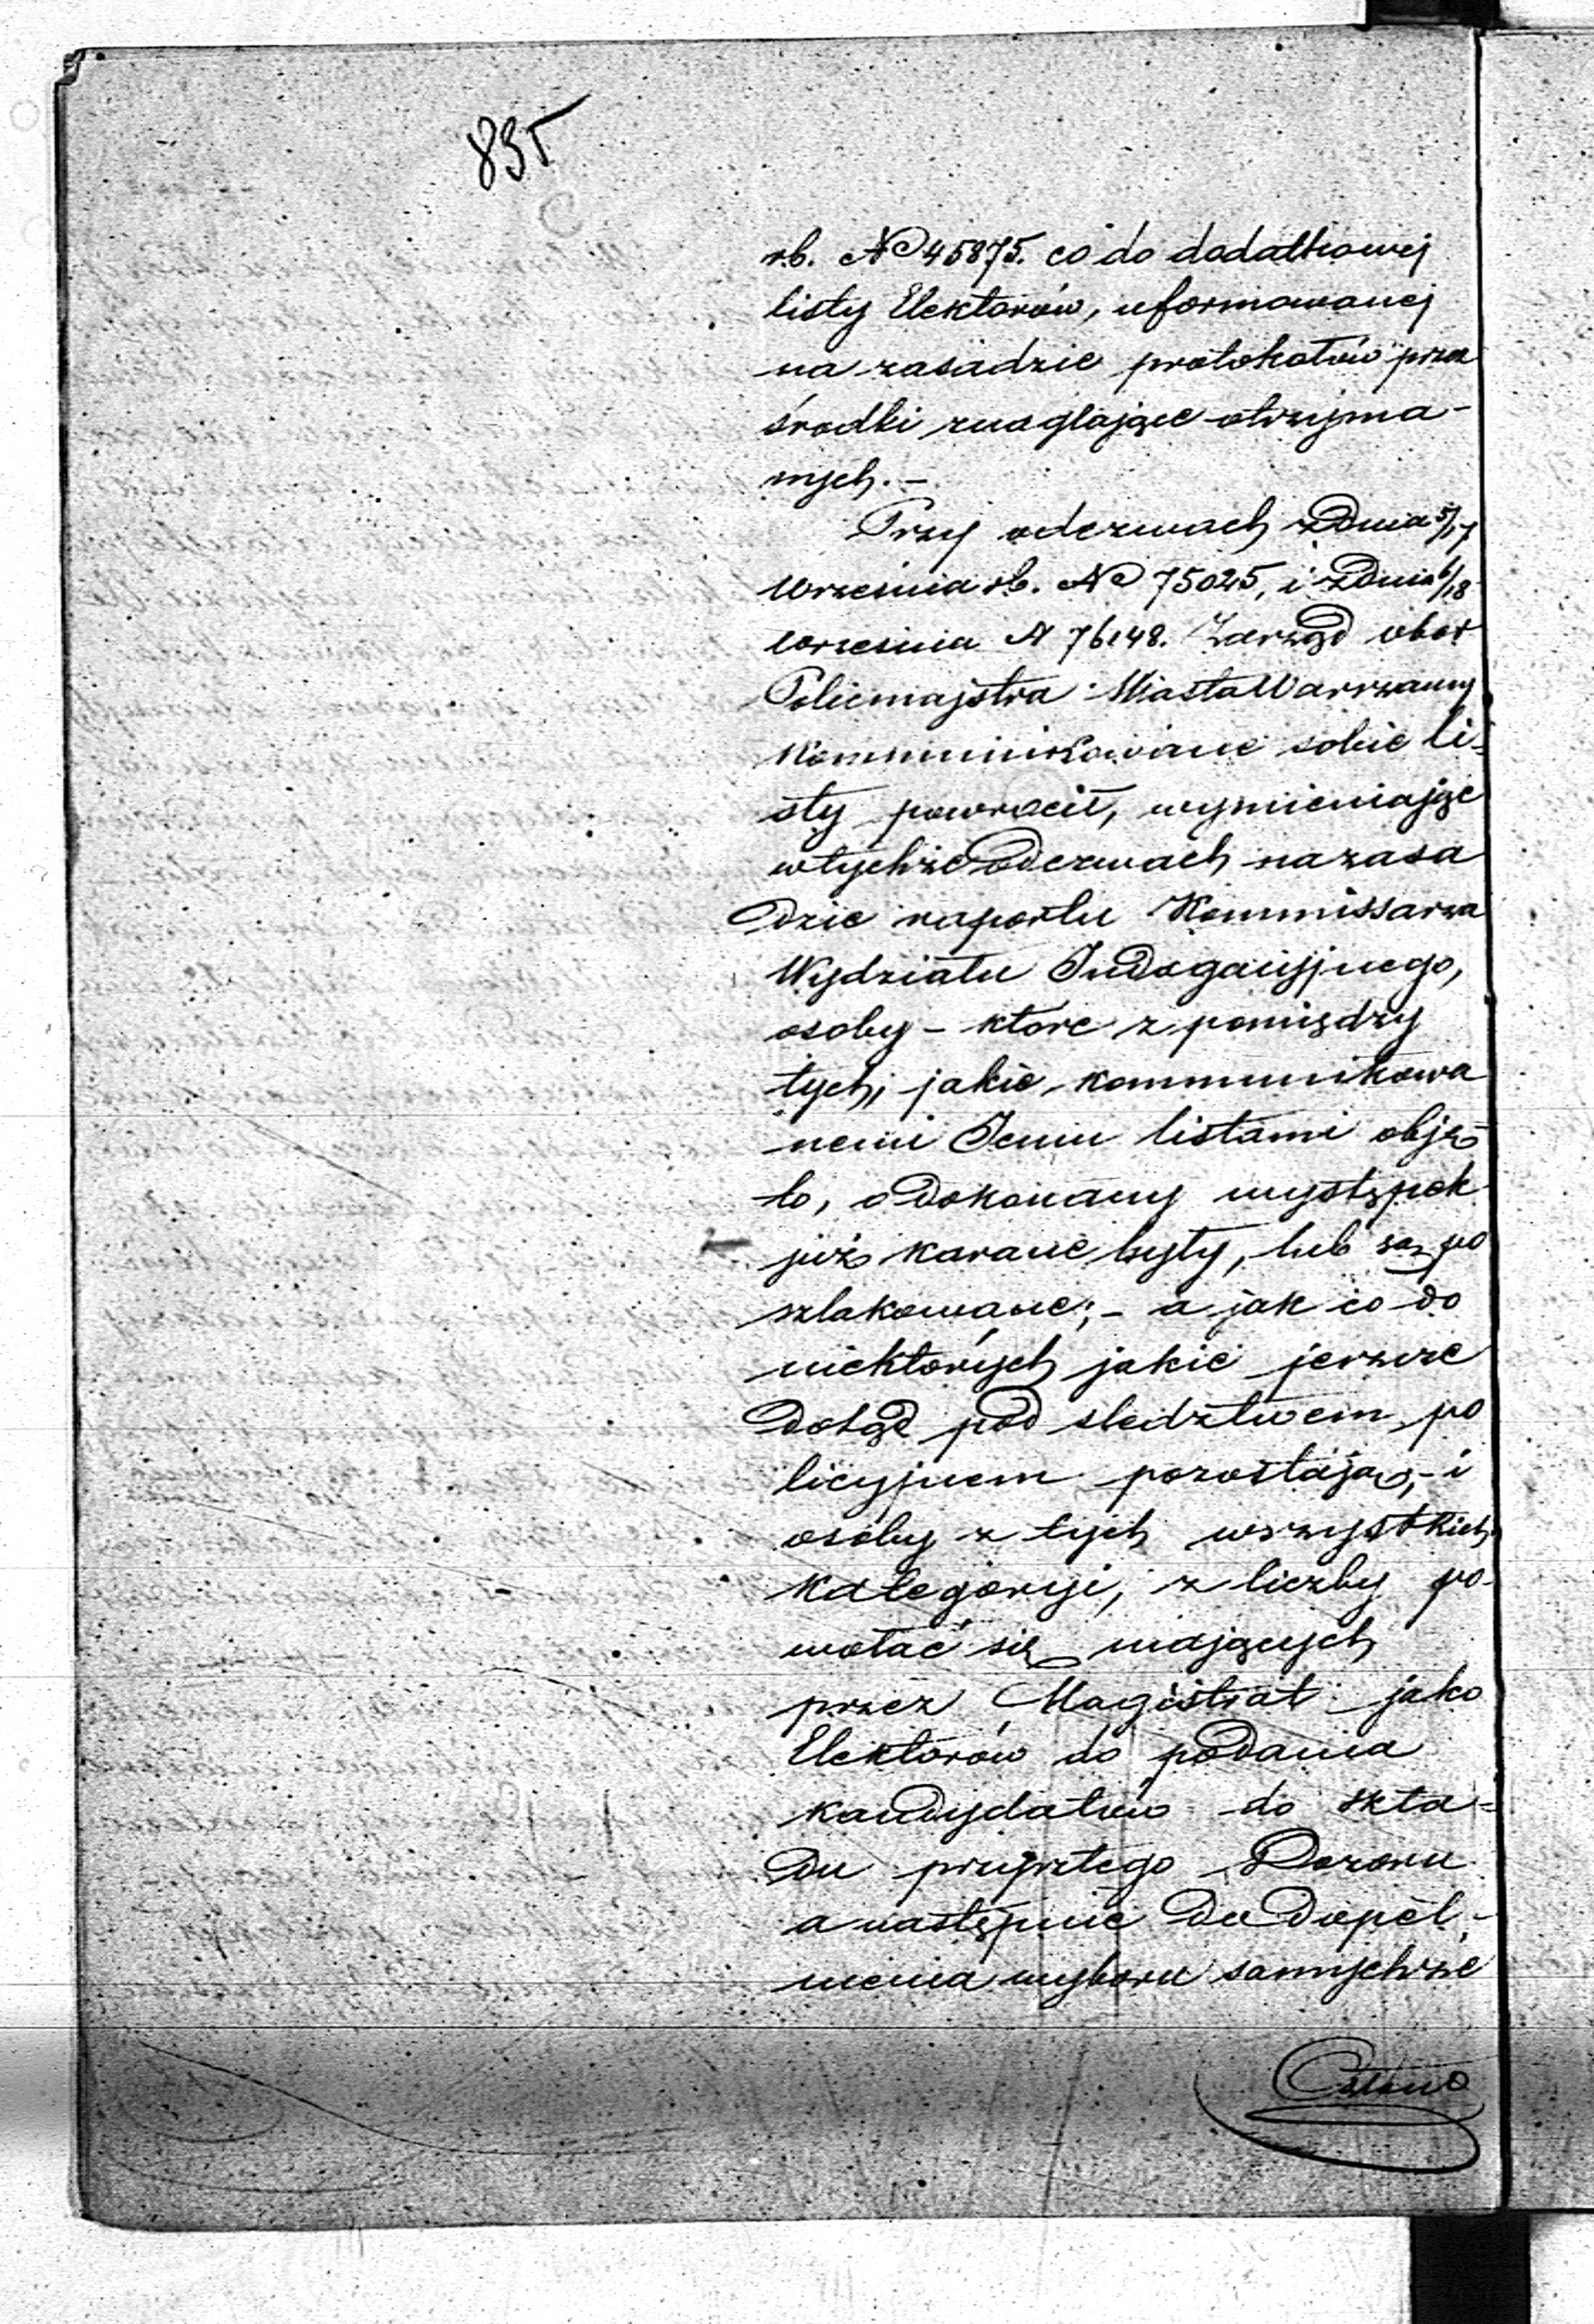 835
rb. No 45875. co do dodatkowej
listy Elektorów, uformowanej
na zasadzie protokołów przez
środki znaglające otrzyma-
nych.-
Przy odezwach z Dnia 5/17
Września rb. No 75025, i z Dnia 6/18
Września N 76148. Zarząd ober
Policmajstra Miasta Warszawy
Kommunikowane sobie li-
sty powrócił, wymieniając
w tychże Odezwach na zasa
dzie raportu Kommissarza
Wydziału Indagacyjnego,
osoby - które z pomiędzy
tych, jakie kommunikowa
nemi Jemu listami obję-
to, o dokonany występek
już karane były, lub są po
szlakowane; - a jak co do
niektórych jakie jeszcze
dotąd pod śledztwem po
licyjnem pozostają, - i
osoby z tych wszystkich
kategoryi, z liczby po-
wołać się mających
przez Magistrat jako
Elektorów do podania
kandydatów do skła-
du przyszłego Dozoru
a następnie do dopeł-
nienia wyboru samychże